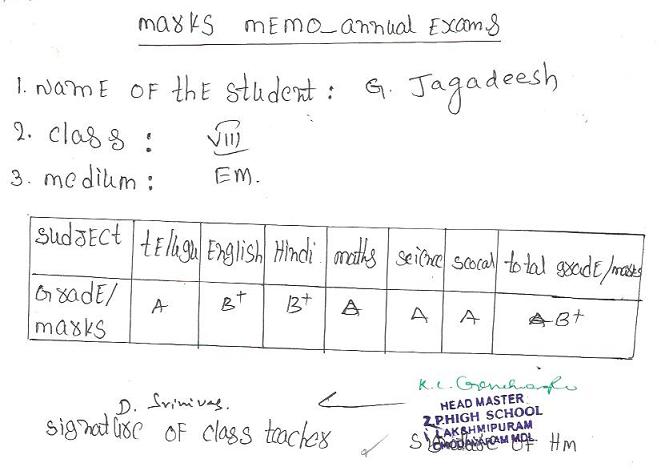 marks mEmo_annual Exams
1. Name OF thE student : G. Jagadeesh
2. class : VIII
3. medium : EM.
SubJECT tElugu English Hindi maths seience scocal total gradE/marks
GradE/ A B+ B+ A A A B+
marks
D. Srinivas.
signature OF class teacher
HEAD MASTER
Z.P.HIGH SCHOOL
LAKSHMIPURAM
MDL.
OF HM